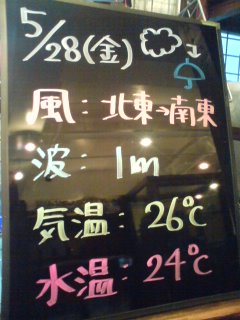 5/28(金)
風：北東→南東
波：1m
気温：26℃
水温：24℃